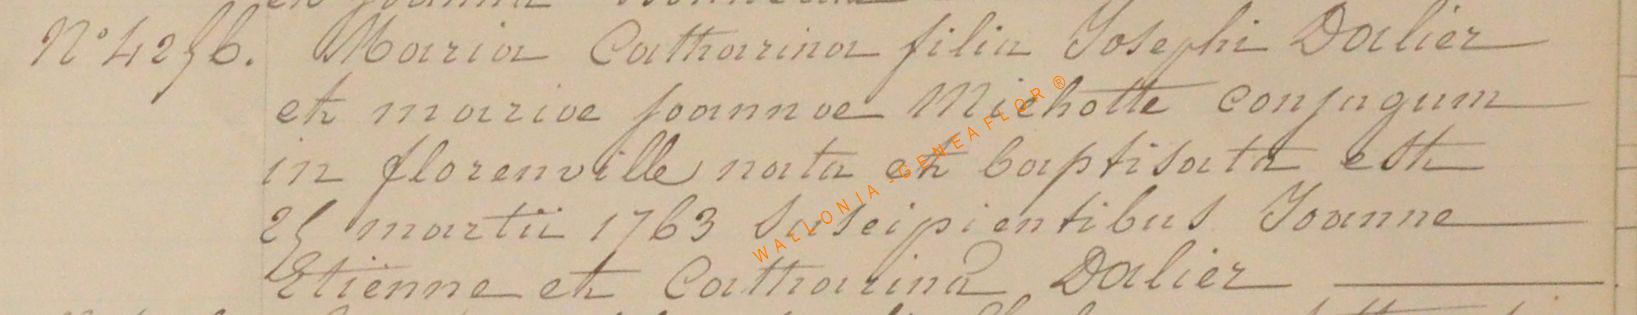 N° 4256. Maria Catharina filia Josephi Dalier
et mariae joannae Michotte conjugum
in florenville nata et baptisata est
25 martii 1763 Suscipientibus Joanne
Etienne et Catharina Dalier
WALLONIA-GENEAFLOR®